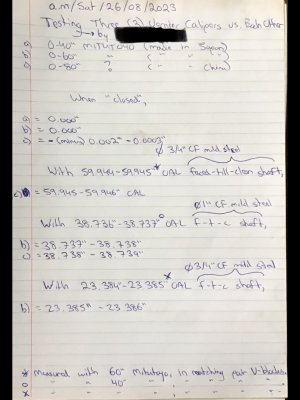 a.m/Sat/26/08/2023
Testing Three (3) Vernier Calipers vs. Each Other
↳ by
a) 0-40" MITUTOYO (made in Japan)
b) 0-60" " ( " " )
c) 0-80" ? ( " " China)
When "closed",
a) = 0.000"
b) = 0.000"
c) = -(minus) 0.002" - 0.0003"
Ø 3/4" CF mild steel
With 59.944-59.945" * OAL faced-till-clean shaft,
c) = 59.945-59.946" OAL
Ø1" CF mild steel
With 38.736" - 38.737" o OAL f-t-c shaft,
b) = 38.737" - 38.738"
c) = 38.738" - 38.739"
Ø3/4" CF mild steel
With 23.384"-23.385" * OAL f-t-c shaft,
b) = 23.385" - 23.386"
* measured with 60" Mitutoyo, in matching pair V-blocks.
o " " 40" " , " " " " "